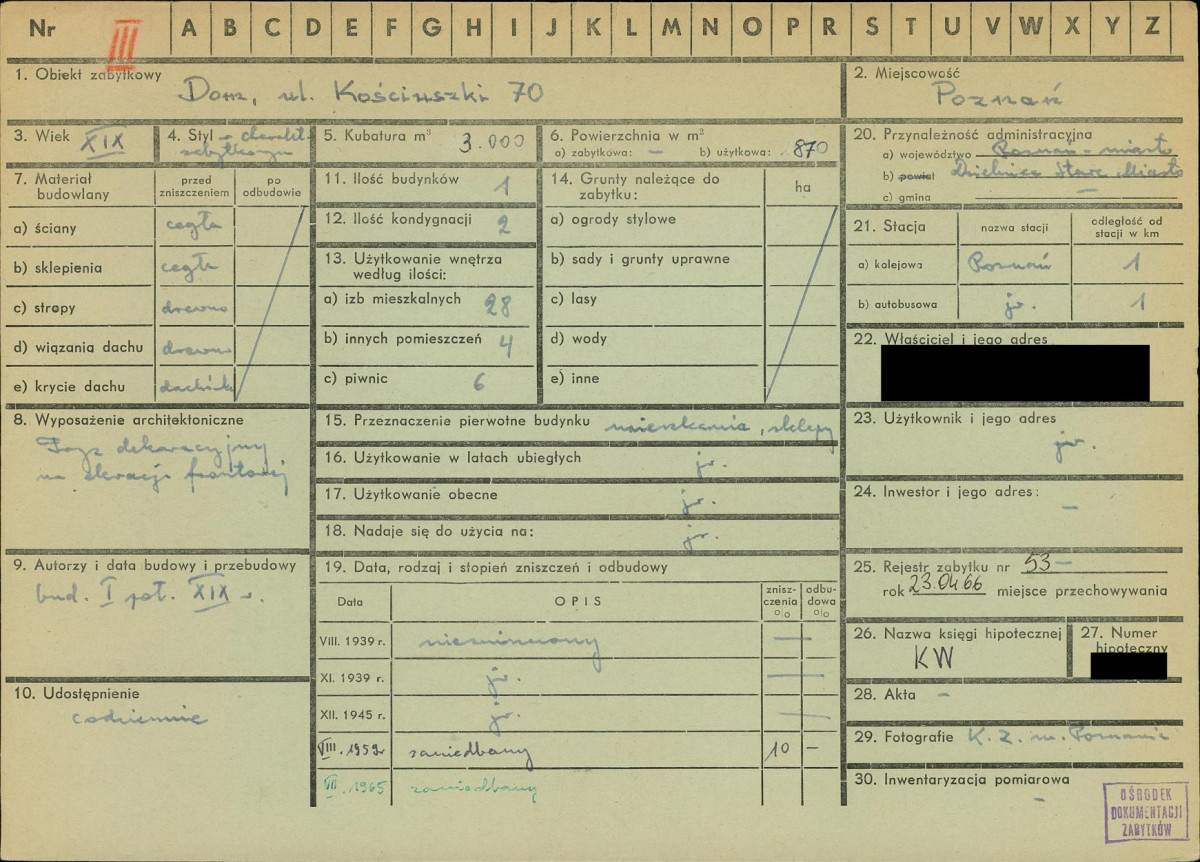 Nr III A B C D E F G H I J K L M N O P R S T U V W X Y Z
1. Obiekt zabytkowy
Dom, ul. Kościuszki 70
2. Miejscowość
Poznań
3. Wiek XIX
4. Styl - charakt.
zabytkowym
5. Kubatura m³ 3.000
6. Powierzchnia w m²
a) zabytkowa: — b) użytkowa: 870
7. Materiał budowlany
przed zniszczeniem
po odbudowie
a) ściany cegła
b) sklepienia cegła
c) stropy drewno
d) wiązania dachu drewno
e) krycie dachu dachówka
8. Wyposażenie architektoniczne
Fryz dekoracyjny
na elewacji frontowej
9. Autorzy i data budowy i przebudowy
bud. I poł. XIX w.
10. Udostępnienie
codziennie
11. Ilość budynków 1
12. Ilość kondygnacji 2
13. Użytkowanie wnętrza
według ilości:
a) izb mieszkalnych 28
b) innych pomieszczeń 4
c) piwnic 6
14. Grunty należące do
zabytku:
ha
a) ogrody stylowe
b) sady i grunty uprawne
c) lasy
d) wody
e) inne
15. Przeznaczenie pierwotne budynku mieszkania, sklepy
16. Użytkowanie w latach ubiegłych jw.
17. Użytkowanie obecne jw.
18. Nadaje się do użycia na: jw.
19. Data, rodzaj i stopień zniszczeń i odbudowy
Data
OPIS
znisz-
czenia
%
odbu-
dowa
%
VIII. 1939 r. niezniszczony —
XI. 1939 r. jw. —
XII. 1945 r. jw. —
VIII. 1959r zaniedbany 10 —
VII. 1965 zaniedbany
20. Przynależność administracyjna
a) województwo Poznań - miasto
b) powiat Dzielnica Stare Miasto
c) gmina —
21. Stacja
nazwa stacji
odległość od
stacji w km
a) kolejowa Poznań 1
b) autobusowa jw. 1
22. Właściciel i jego adres
23. Użytkownik i jego adres
jw.
24. Inwestor i jego adres:
—
25. Rejestr zabytku nr 53 —
rok 23.04.66 miejsce przechowywania
26. Nazwa księgi hipotecznej
KW
27. Numer
hipoteczny
28. Akta -
29. Fotografie K. Z. m. Poznania
30. Inwentaryzacja pomiarowa
-
OŚRODEK
DOKUMENTACJI
ZABYTKÓW